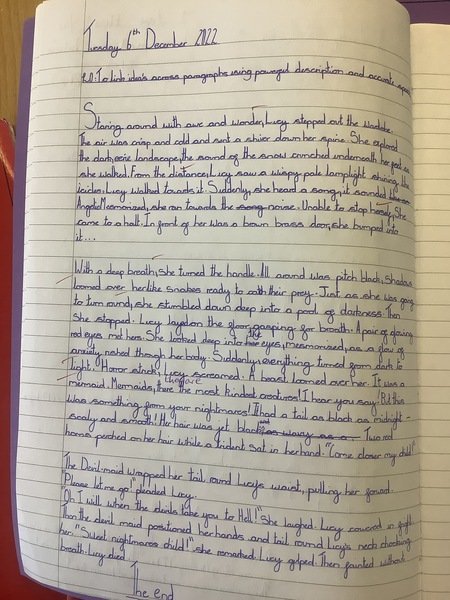 Tuesday 6th December 2022
L.O: To link idea's across paragraphs using powerful description and accurate
Staring around with awe and wonder, Lucy stepped out the wardobe.
The air was crisp and cold and sent a shiver down her spine. She explored
the dark, eerie landscape, the sound of the snow crunched underneath her feet as
she walked. From the distance, Lucy saw a wispy pale lamplight shining the
icicles. Lucy walked towards it. Suddenly, she heard a song, it sounded
Angelic. Mesmorized, she ran towards the song noise. Unable to stop, She
came to a halt. In front of her was a brown brass door, she bumped into
it...
With a deep breath, she turned the handle. All around was pitch black, Shadows
loomed over her like snakes ready to cath their prey. Just as she was going
to turn round, she stumbled down deep into a pool of darkness. Then
She stopped. Lucy layed on the floor gasping for breath. A pair of glowing
red eyes met hers. She looked deep into her the eyes, mesmorized, as a flow of
anxiety rushed through her body. Suddenly, everything turned from dark to
light. Horror struck, Lucy screamed. A beast loomed over her. It was a
mermaid. Mermaids, there they are the most kindest creatures! I hear you say! But this
was something from your nightmares! It had a tail as black as midnight -
scaly and smooth! Her hair was jet black and as wavy as a. Two red
horns perched on her hair while a trident sat in her hand. "Come closer my child!"
The Devil-maid wrapped her tail round Lucy's waist, pulling her forward.
"Please let me go!" pleaded Lucy.
"Oh I will, when the devils take you to Hell!" She laughed. Lucy cowered in fright.
Then the devil maid positioned her hands and tail round Lucy's neck chocking
her. "Sweet nightmares child!" she remarked. Lucy gasped. Then fainted without
breath. Lucy died.
The end